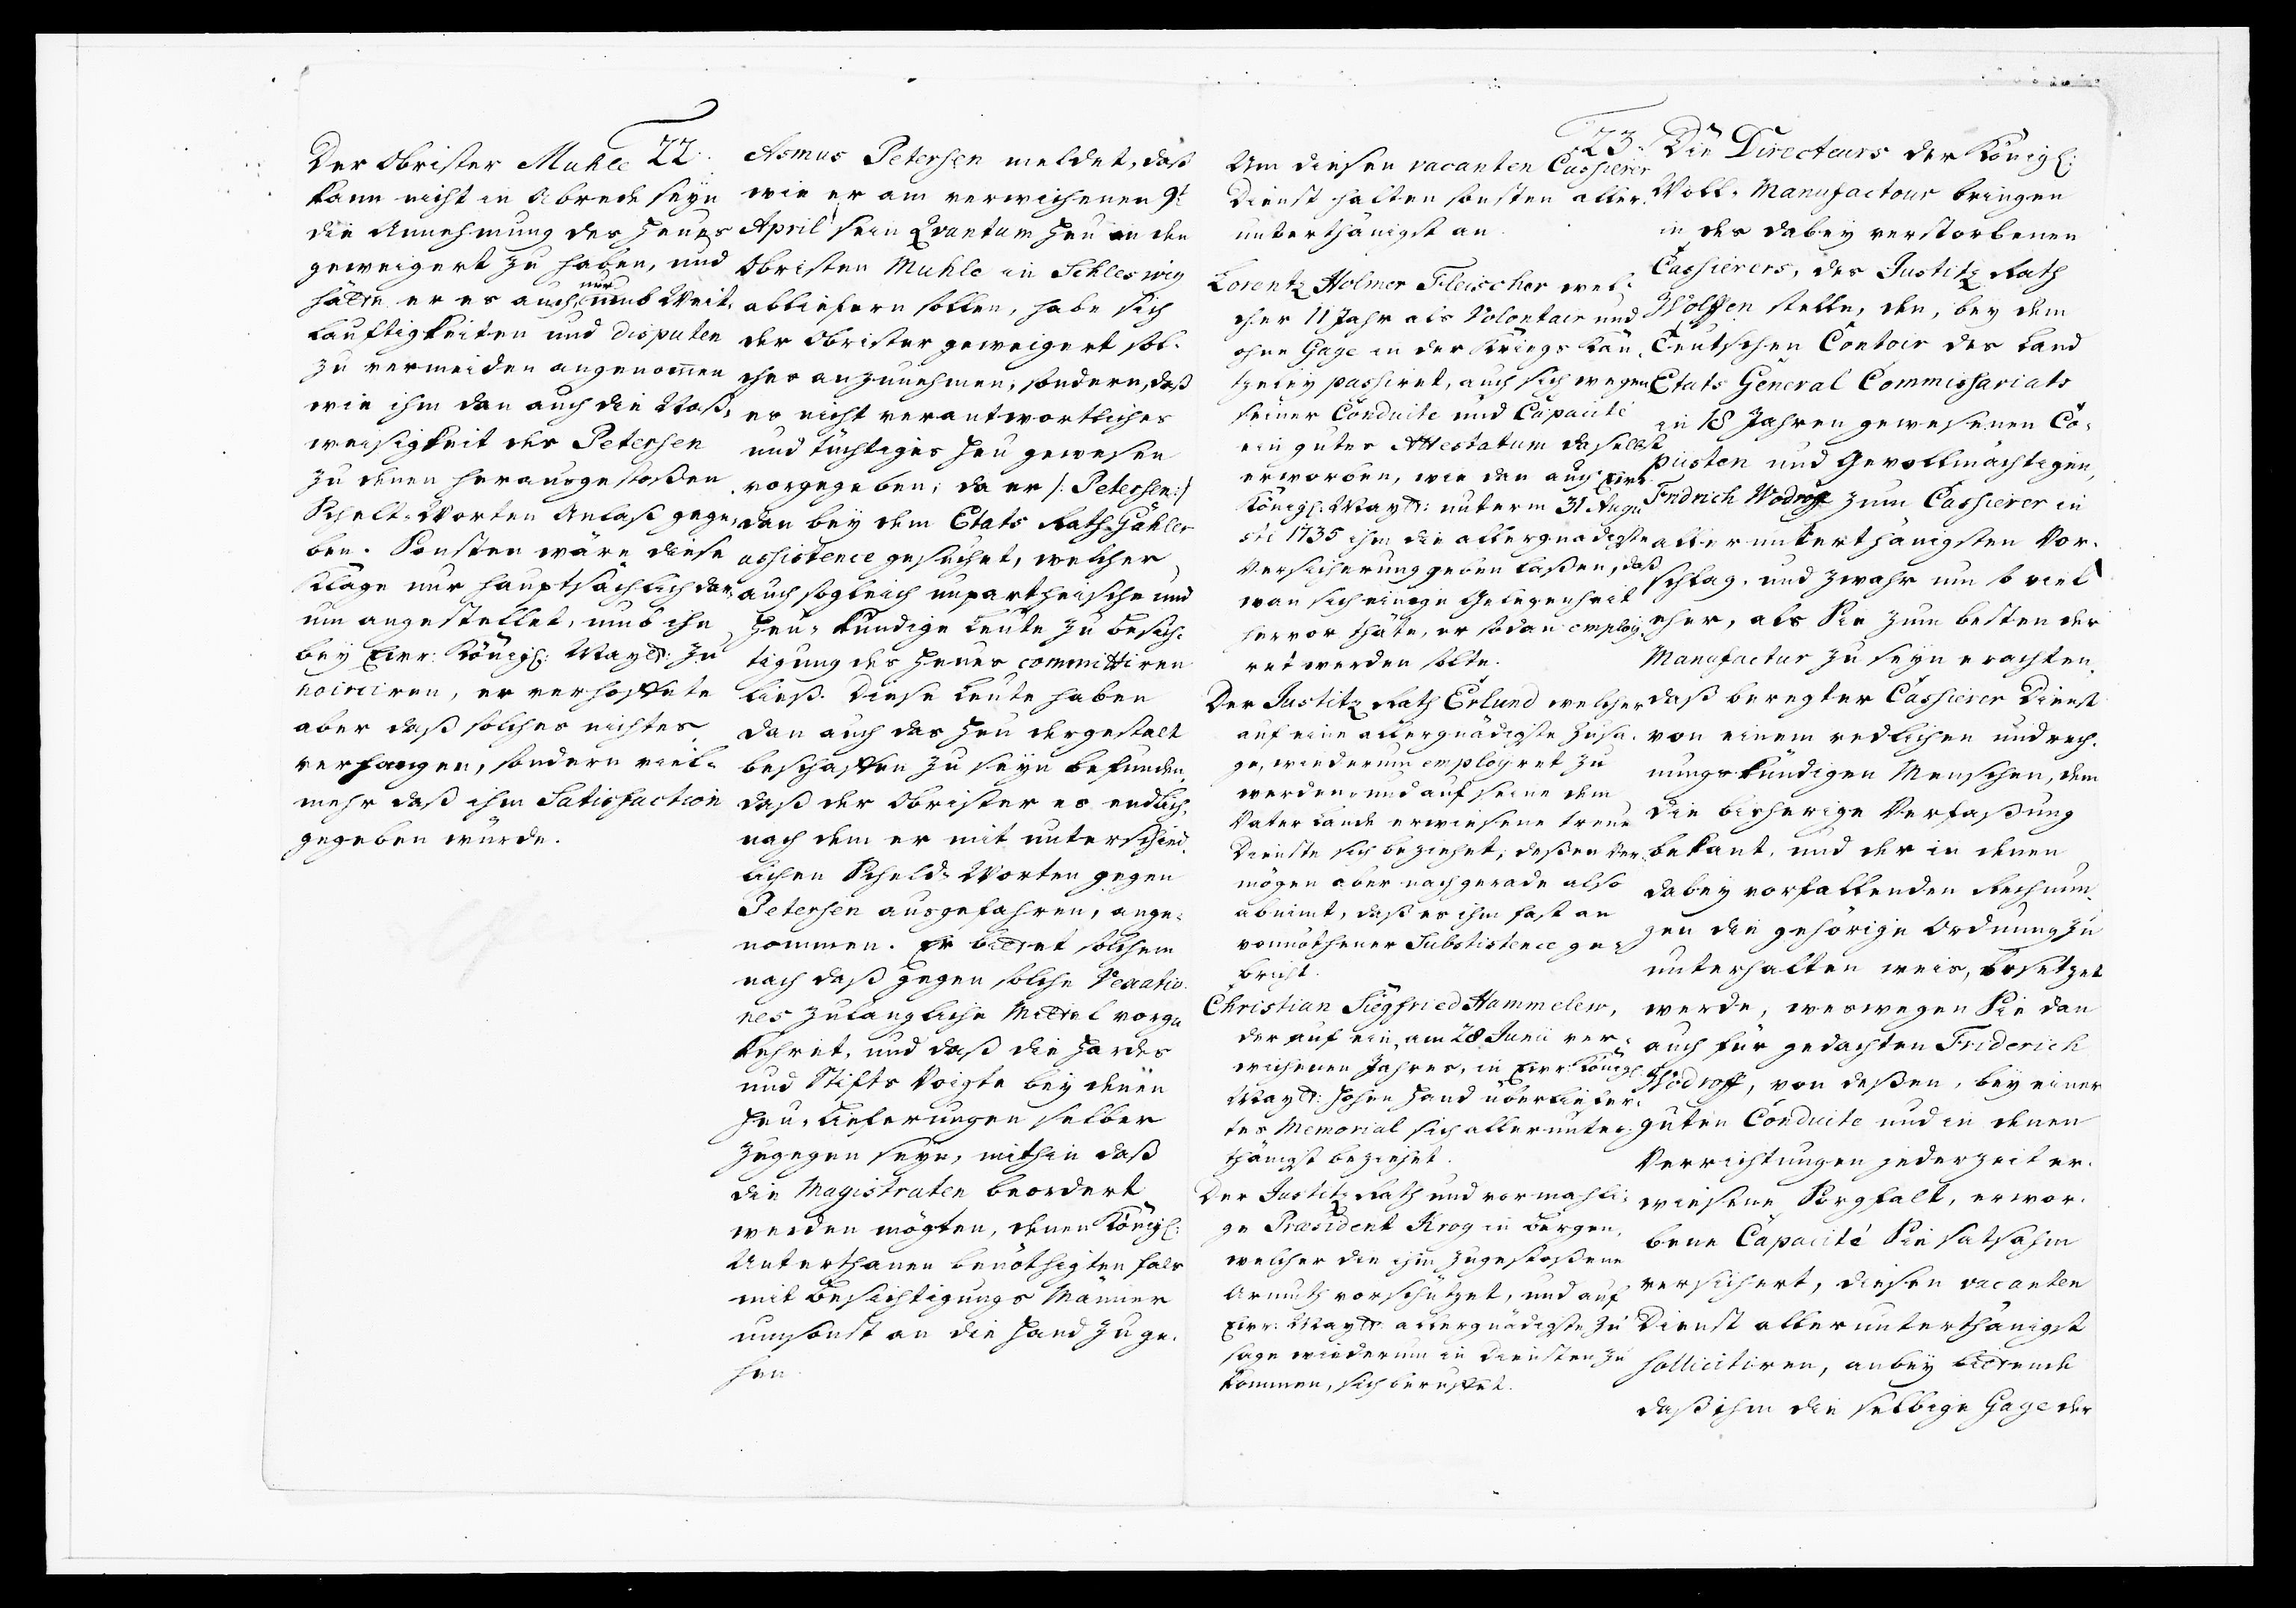 22.
Der Obrister Muhle
kann nicht in Abrede seyn
die Annehmung des Heues
geweigert zu haben, und
hätte er es auch nur umb Weit-
läuftigkeiten und disputen
zu vermeiden angenommen
wie ihm dan auch die Naß-
weisigkeit des Petersen
zu denen herausgestoßen
Schelt-Worten Anlaß gege-
ben. Sonsten wäre diese
Klage nur hauptsächlich dar-
um angestellet, umb ihn
bey Ewr: Königl: Maytt: zu
noirciren, er verhoffete
aber daß solches nichtes
verfangen, sondern viel-
mehr daß ihm Satisfaction
gegeben würde.
Asmus Petersen meldet, daß
wie er am verwichenen 9t
April sein Quantum Heu an den
Obristen Muhle in Schleswig
abliefern sollen, habe sich
der Obrister geweigert sol-
ches anzunehmen, sondern, daß
es nicht verantwortliches
und tüchtiges Heu gewesen
vorgegeben; da er /: Petersen :/
dan bey dem Etats Rath Gähler
assistence gesuchet, welcher
auch sogleich unpartheische und
Heu-kundige Leute zu besich-
tigung des Heues committiren
ließ. Diese Leute haben
dan auch das Heu dergestalt
beschaffen zu seyn befunden,
daß der Obrister es endlich,
nach dem er mit unterschied-
lichen Scheld-Worten gegen
Petersen ausgefahren, ange-
nommen. Er bittet solchem
nach daß gegen solche Vexatio-
nes zulangliche Mittel vorge-
kehret, und daß die Hardes
und Stifts Voigte bey denen
Heu-Lieferungen selber
zugegen seyn, mithin daß
die Magistraten beordert
werden mögten, denen Königl:
Unterthanen benöthigten fals
mit Besichtigungs Männer
umsonst an die Hand zu ge-
hen.
23.
Um diesen vacanten Cassierer
Dienst halten sonsten aller-
unterthänigst an.
Lorentz Holmer Fleischer wel-
cher 11 Jahr als Volontair und
ohne Gage in der Kriegs Can-
tzeley passiret, auch sich wegen
seiner Conduite und Capacité
ein gutes Attestatum daselbst
erworben, wie dan auch Ewr:
Königl: Maytt: unterm 31 Augu
sti 1735 ihm die allergnädigste
Versicherung geben laßen, daß
wan sich einige Gelegenheit
hervor thäte, er sodan employ-
ret werden solte.
Der Justitz Rath Erlund welcher
auf eine allergnädigste Zusa-
ge, wiederum employret zu
werden, und auf seine dem
Vaterlande erwiesene treue
Dienste sich beziehet, deßen Ver-
mögen aber nachgerade also
abnimt, daß es ihm fast an
vonnöthener Subsistence ge-
bricht.
Christian Siegfried Hammelew,
der auf ein, am 28 Junii ver-
wichenen Jahres, in Ewr: Königl:
Maytt: hohen Hand überliefer-
tes Memorial sich allerunter-
thänigst beziehet.
Der Justitz Rath und vormahli-
ge Præsident Krog in Bergen,
welcher die ihm zugestoßene
Armuth vorschützet, und auf
Ewr: Maytt: allergnädigste Zu
sage wiederum in Diensten zu
kommen, sich beruffet.
Die Directeurs der Königl:
Woll-Manufactour bringen
in des dabey verstorbenen
Cassierers, des Justitz Rath
Wolffen stelle, den, bey dem
Teutschen Contoir des Land
Etats General Commissariats
in 18 Jahren gewesenen Co-
piisten und Gevollmächtigen,
Fridrich Wodroff zum Cassierer in
allerunterthänigsten Vor-
schlag, und zwahr um so viel
eher, als Sie zum besten der
Manufactur zu seyn erachten,
daß beregter Cassierer Dienst
von einem redlichen und rech-
nungskündigen Menschen, dem
die bisherige Verfaßung
bekant, und der in denen
dabey vorfallenden Rechnun-
gen die gehörige Ordnung zu
unterhalten weis, besetzet
werde, weswegen Sie dan
auch für gedachten Friderich
Wodroff, von deßen, bey einer
guten Conduite und in denen
Verrichtungen jederzeit er-
wiesene Sorgfalt, erwor-
bene Capacité Sie satsahm
versichert, diesen vacanten
Dienst allerunterthänigst
sollicitiren, anbey bittende
daß ihm die selbige Gage der